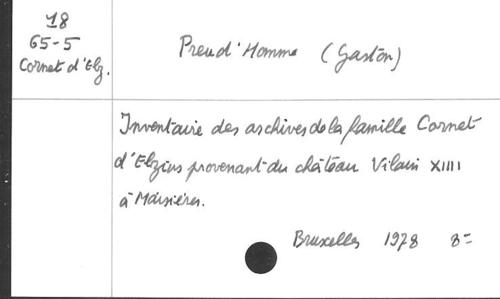 18
65-5
Cornet d'Elz.
Preud'Homme (Gaston)
Inventaire des archives de la famille Cornet
d'Elzius provenant du château Vilain XIIII
à Maisières.
Bruxelles 1978 8=